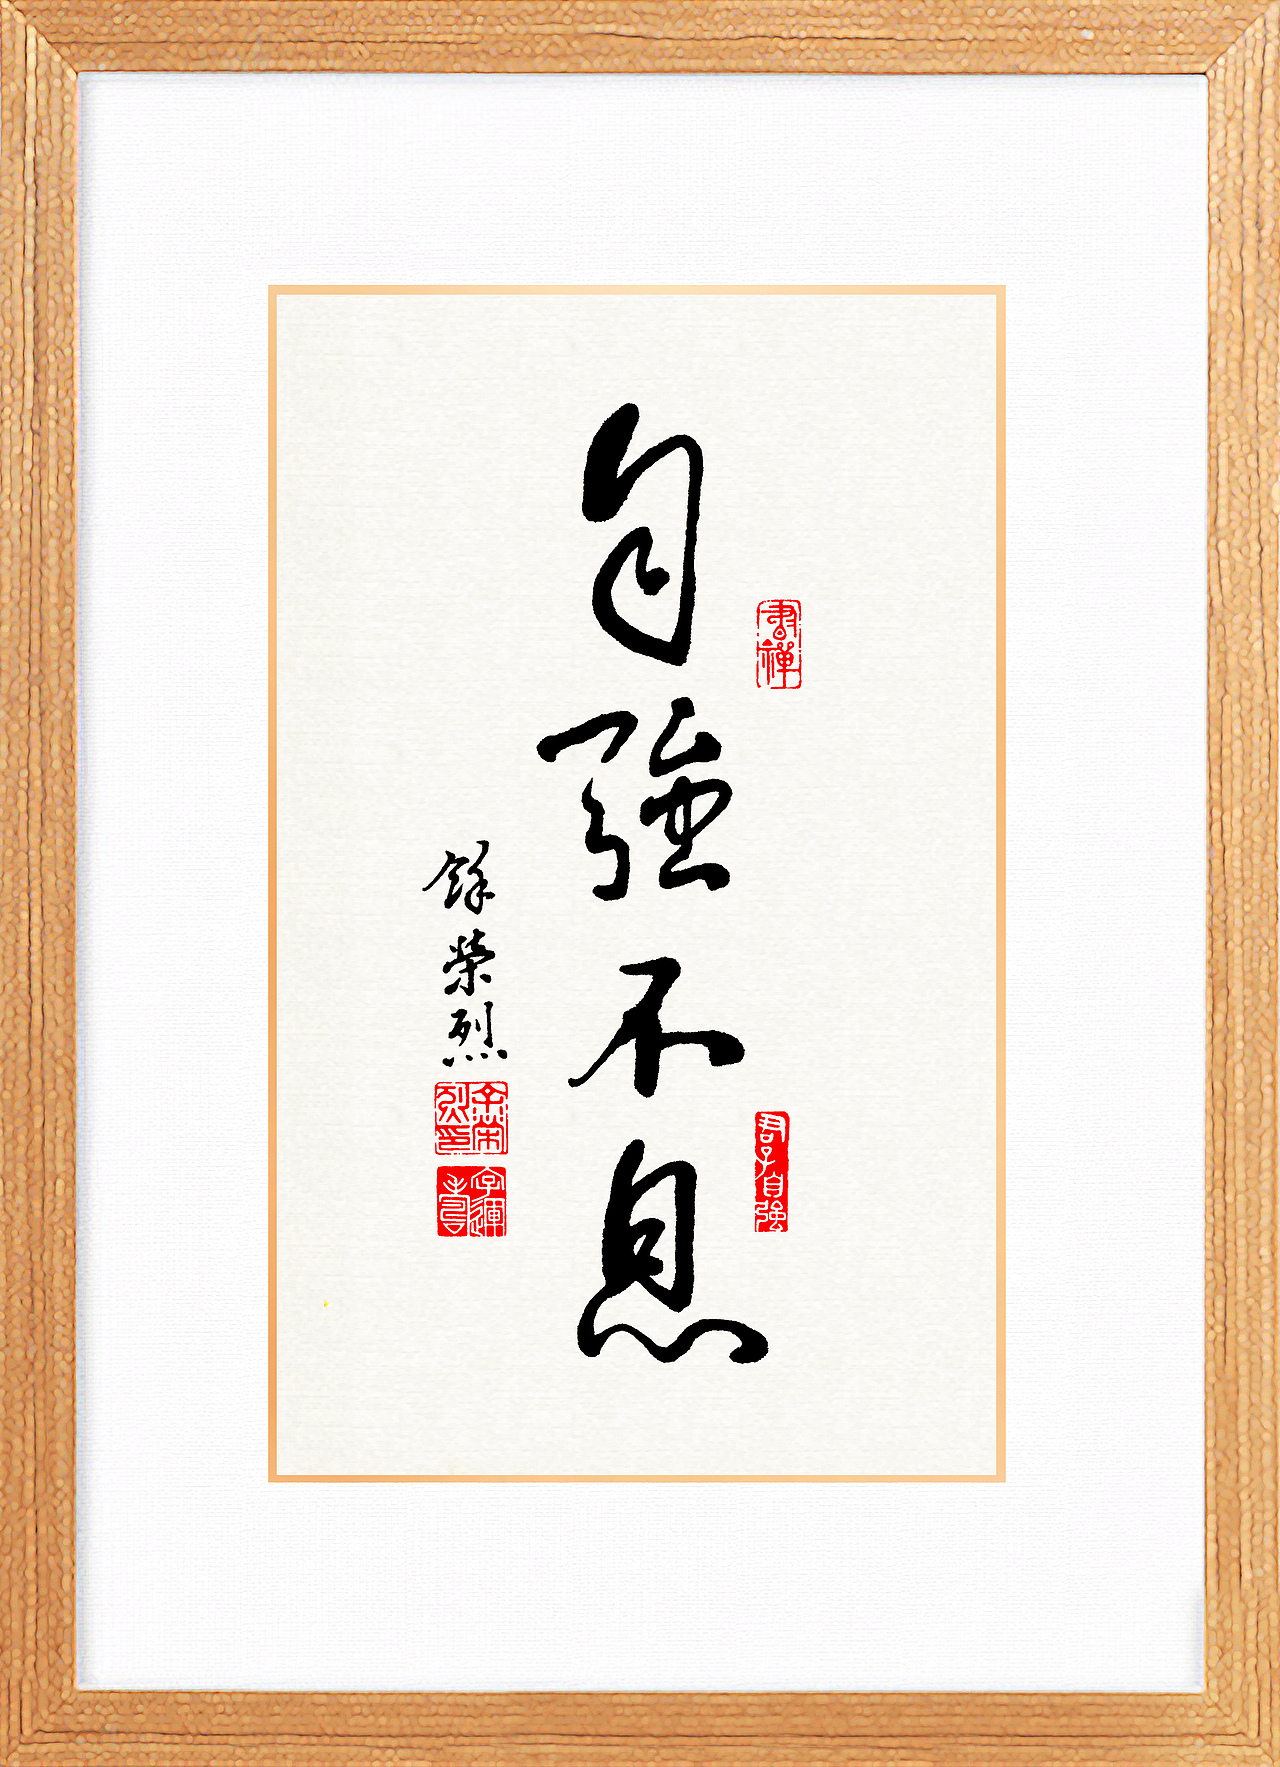 自強不息
君子自強
餘榮烈
余榮烈印